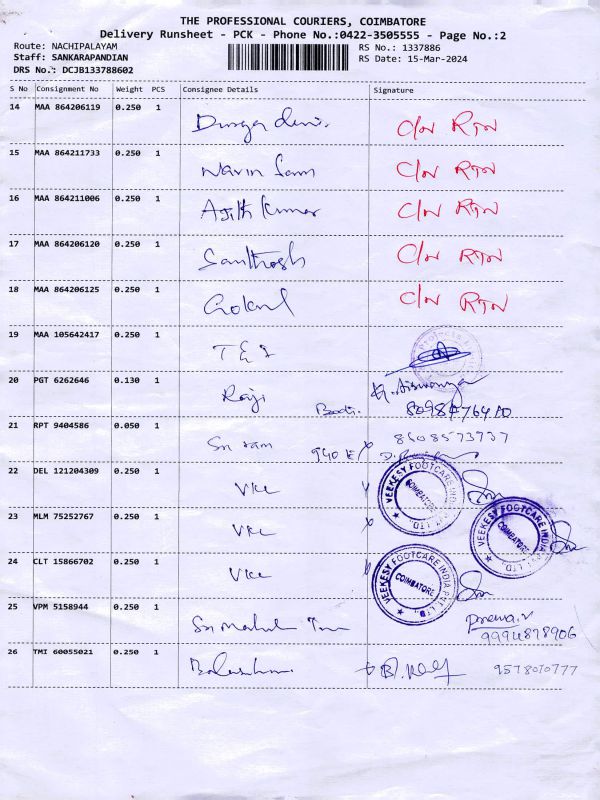 THE PROFESSIONAL COURIERS, COIMBATORE
Delivery Runsheet - PCK - Phone No.:0422-3505555 - Page No.:2
Route: NACHIPALAYAM
Staff: SANKARAPANDIAN
DRS No.: DCJB133788602
RS No.: 1337886
RS Date: 15-Mar-2024
S No Consignment No Weight PCS Consignee Details Signature
14 MAA 864206119 0.250 1 Durga devi. C/N RTN
15 MAA 864211733 0.250 1 Navin C/N RTN
16 MAA 864211006 0.250 1 Ajith Kumar C/N RTN
17 MAA 864206120 0.250 1 Santhosh C/N RTN
18 MAA 864206125 0.250 1 Gokul C/N RTN
19 MAA 105642417 0.250 1
20 PGT 6262646 0.130 1 Raji
21 RPT 9404586 0.050 1 Sri ram 8608573737
22 DEL 121204309 0.250 1 VKC VEEKESY FOOTCARE INDIA PVT. LTD. COIMBATORE
23 MLM 75252767 0.250 1 VKC VEEKESY FOOTCARE INDIA PVT. LTD. COIMBATORE
24 CLT 15866702 0.250 1 VKC VEEKESY FOOTCARE INDIA PVT. LTD. COIMBATORE
25 VPM 5158944 0.250 1 Sri 9994878906
26 TMI 60055021 0.250 1 9578070777